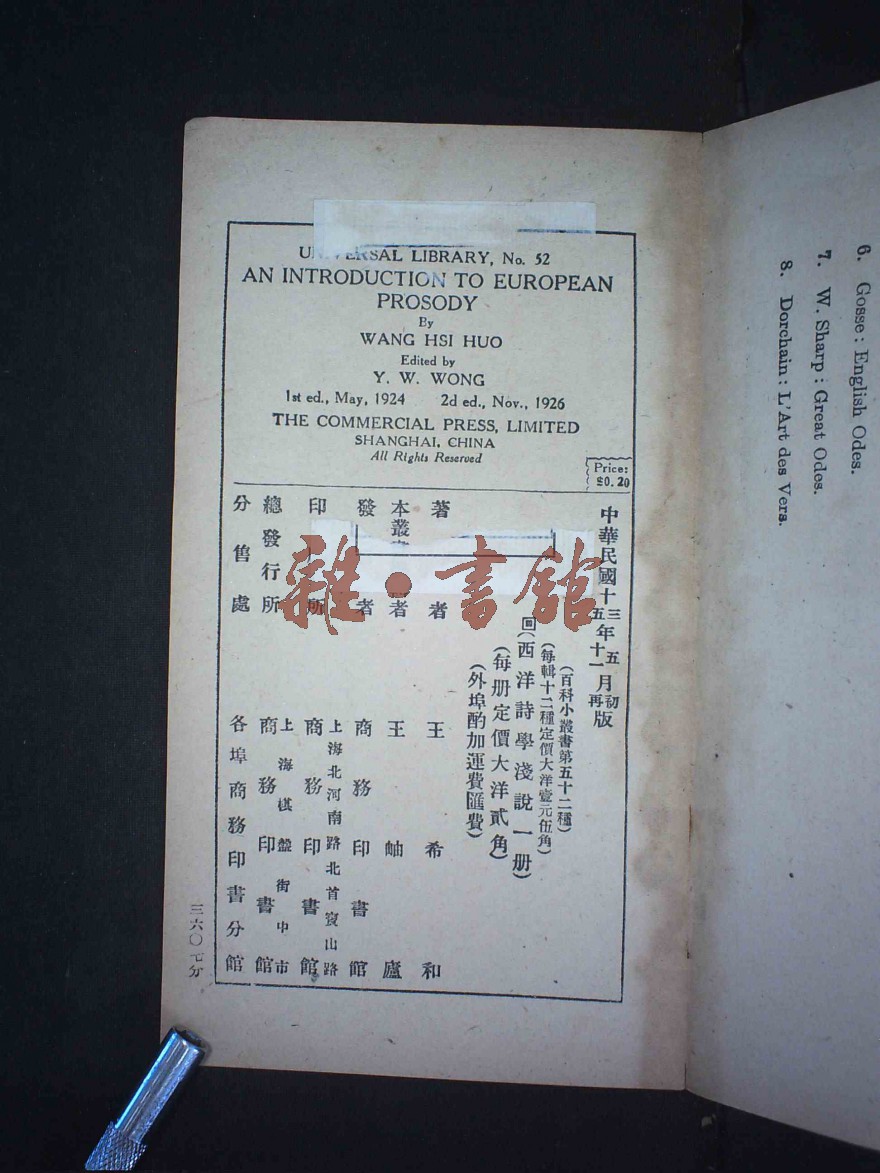 UNIVERSAL LIBRARY, No. 52
AN INTRODUCTION TO EUROPEAN
PROSODY
By
WANG HSI HUO
Edited by
Y. W. WONG
1st ed., May, 1924 2d ed., Nov., 1926
THE COMMERCIAL PRESS, LIMITED
SHANGHAI, CHINA
All Rights Reserved
Price:
$0.20
中華民國十三年五月初版
五 十一 再
(百科小叢書第五十二種)
(每輯十二種定價大洋壹元伍角)
回(西洋詩學淺說一册)
(每册定價大洋貳角)
(外埠酌加運費匯費)
著者 王希和
本叢 者 王岫廬
發 者 商務印書館
印 所 上海北河南路北首寶山路 商務印書館
總發行所 上海棋盤街中市 商務印書館
分售處 各埠商務印書分館
三六〇七分
雜·書館
6. Gosse: English Odes.
7. W. Sharp: Great Odes.
8. Dorchain: L'Art des Vers.